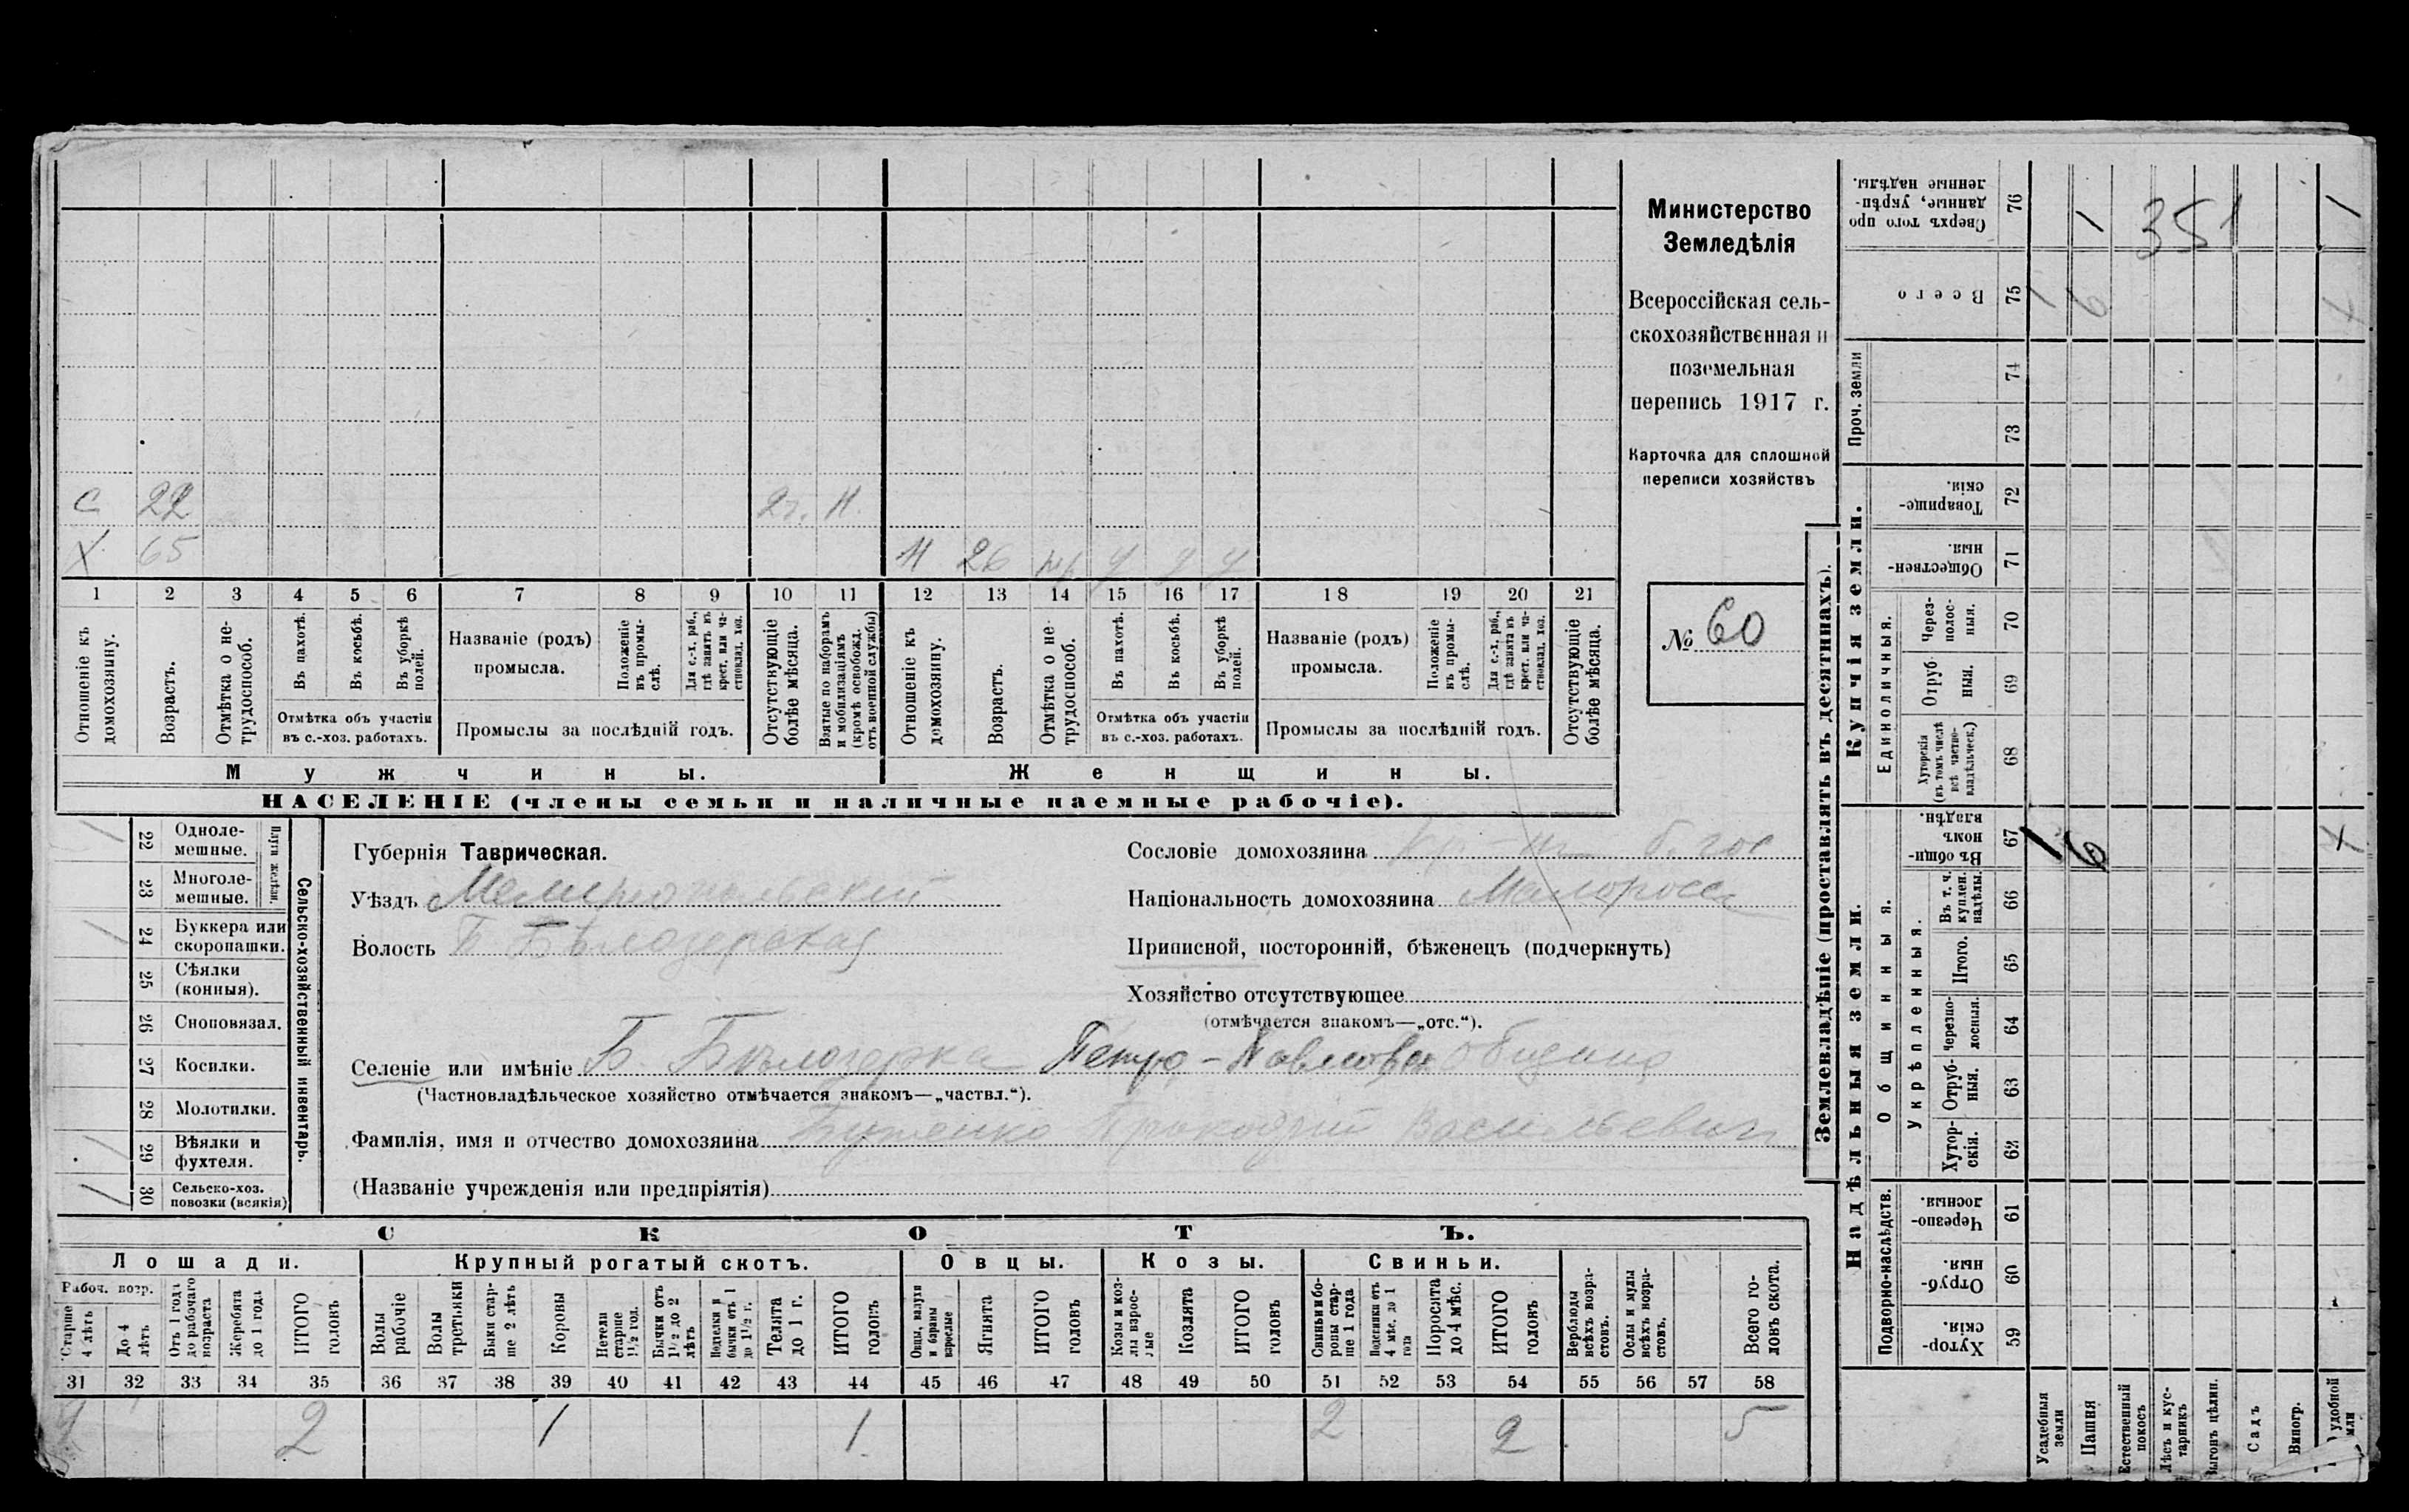 Министерство
Земледѣлія
Всероссійская сель-
скохозяйственная и
поземельная
перепись 1917 г.
Карточка для сплошной
переписи хозяйствъ
№ 60
С 22 2г. Н
Х 65 Н 26 у у у
1 2 3 4 5 6 7 8 9 10 11 12 13 14 15 16 17 18 19 20 21
Отношеніе къ домохозяину.
Возрастъ.
Отмѣтка о не-трудоспособ.
Въ пахотѣ.
Въ косьбѣ.
Въ уборкѣ полей.
Отмѣтка объ участіи
въ с.-хоз. работахъ.
Названіе (родъ)
промысла.
Положеніе въ промы-слѣ.
Для с.-х. раб., гдѣ занятъ въ крест. или ча-стновлад. хоз.
Промыслы за послѣдній годъ.
Отсутствующіе болѣе мѣсяца.
Взятые по наборамъ и мобилизаціямъ (кромѣ освобожд. отъ военной службы)
Отношеніе къ домохозяину.
Возрастъ.
Отмѣтка о не трудоспособ.
Въ пахотѣ.
Въ косьбѣ.
Въ уборкѣ полей.
Отмѣтка объ участіи
въ с.-хоз. работахъ.
Названіе (родъ)
промысла.
Положеніе въ промы-слѣ.
Для с.-х. раб., гдѣ занятъ въ крест. или ча-стновлад. хоз.
Промыслы за послѣдній годъ.
Отсутствующіе болѣе мѣсяца.
Мужчины.
Женщины.
НАСЕЛЕНІЕ (члены семьи и наличные наемные рабочіе).
Сельско-хозяйственный инвентарь.
Плуги желѣзн.
22 Одноле-мешные.
23 Многоле-мешные.
24 Буккера или скоропашки.
25 Сѣялки (конныя).
26 Сноповязал.
27 Косилки.
28 Молотилки.
29 Вѣялки и фухтеля.
30 Сельско-хоз. повозки (всякія)
Губернія Таврическая.
Уѣздъ Мелитопольскій
Волость Б Бѣлозерская
Сословіе домохозяина кр-нъ б. гос
Національность домохозяина Малороссъ
Приписной, посторонній, бѣженецъ (подчеркнуть)
Хозяйство отсутствующее
(отмѣчается знакомъ—„отс.“).
Селеніе или имѣніе Б. Бѣлозерка Петро-Павловск община
(Частновладѣльческое хозяйство отмѣчается знакомъ—„частвл.“).
Фамилія, имя и отчество домохозяина Прокофій Васильевич
(Названіе учрежденія или предпріятія)
СКОТЪ.
Лошади. Крупный рогатый скотъ. Овцы. Козы. Свиньи.
Рабоч. возр.
Старше 4 лѣтъ
До 4 лѣтъ
Отъ 1 года до рабочаго возраста
Жеребята до 1 года
ИТОГО головъ
Волы рабочіе
Волы третьяки
Быки стар-ше 2 лѣтъ
Коровы
Нетели старше 1½ год.
Бычки отъ 1½ до 2 лѣтъ
Подтелки и бычки отъ 1 до 1½ г.
Телята до 1 г.
ИТОГО головъ
Овцы, валухи и бараны взрослые
Ягнята
ИТОГО головъ
Козы и коз-лы взрос-лые
Козлята
ИТОГО головъ
Свиньи и бо-ровы стар-ше 1 года
Подсвинки отъ 4 мѣс. до 1 года
Поросята до 4 мѣс.
ИТОГО головъ
Верблюды всѣхъ возра-стовъ.
Ослы и мулы всѣхъ возра-стовъ.
Всего го-ловъ скота.
31 32 33 34 35 36 37 38 39 40 41 42 43 44 45 46 47 48 49 50 51 52 53 54 55 56 57 58
2 2 1 1 2 2 5
Землевладѣніе (проставлять въ десятинахъ).
Надѣльныя земли.
Купчія земли.
Проч. земли
Подворно-наслѣдств.
Общинныя.
Укрѣпленныя.
Единоличныя.
Сверхъ того про данные, укрѣп-ленные надѣлы. 76 351
Всего 75 1 6
74
73
Товарище-скія. 72
Обществен-ныя. 71
Через-полос-ныя. 70
Отруб-ныя. 69
Хуторскія (въ томъ числѣ всѣ частно-владѣльческ.) 68
Въ общи-номъ владѣн. 67 1 6
Въ т. ч. куплен. надѣлы. 66
Итого. 65
Черезпо-лосныя. 64
Отруб-ныя. 63
Хутор-скія. 62
Черезпо-лосныя. 61
Отруб-ныя. 60
Хутор-скія. 59
Усадебныя земли
Пашня
Естественный покосъ
Лѣсъ и кус-тарникъ
Выгонъ цѣлин.
Садъ
Виногр.
удобной